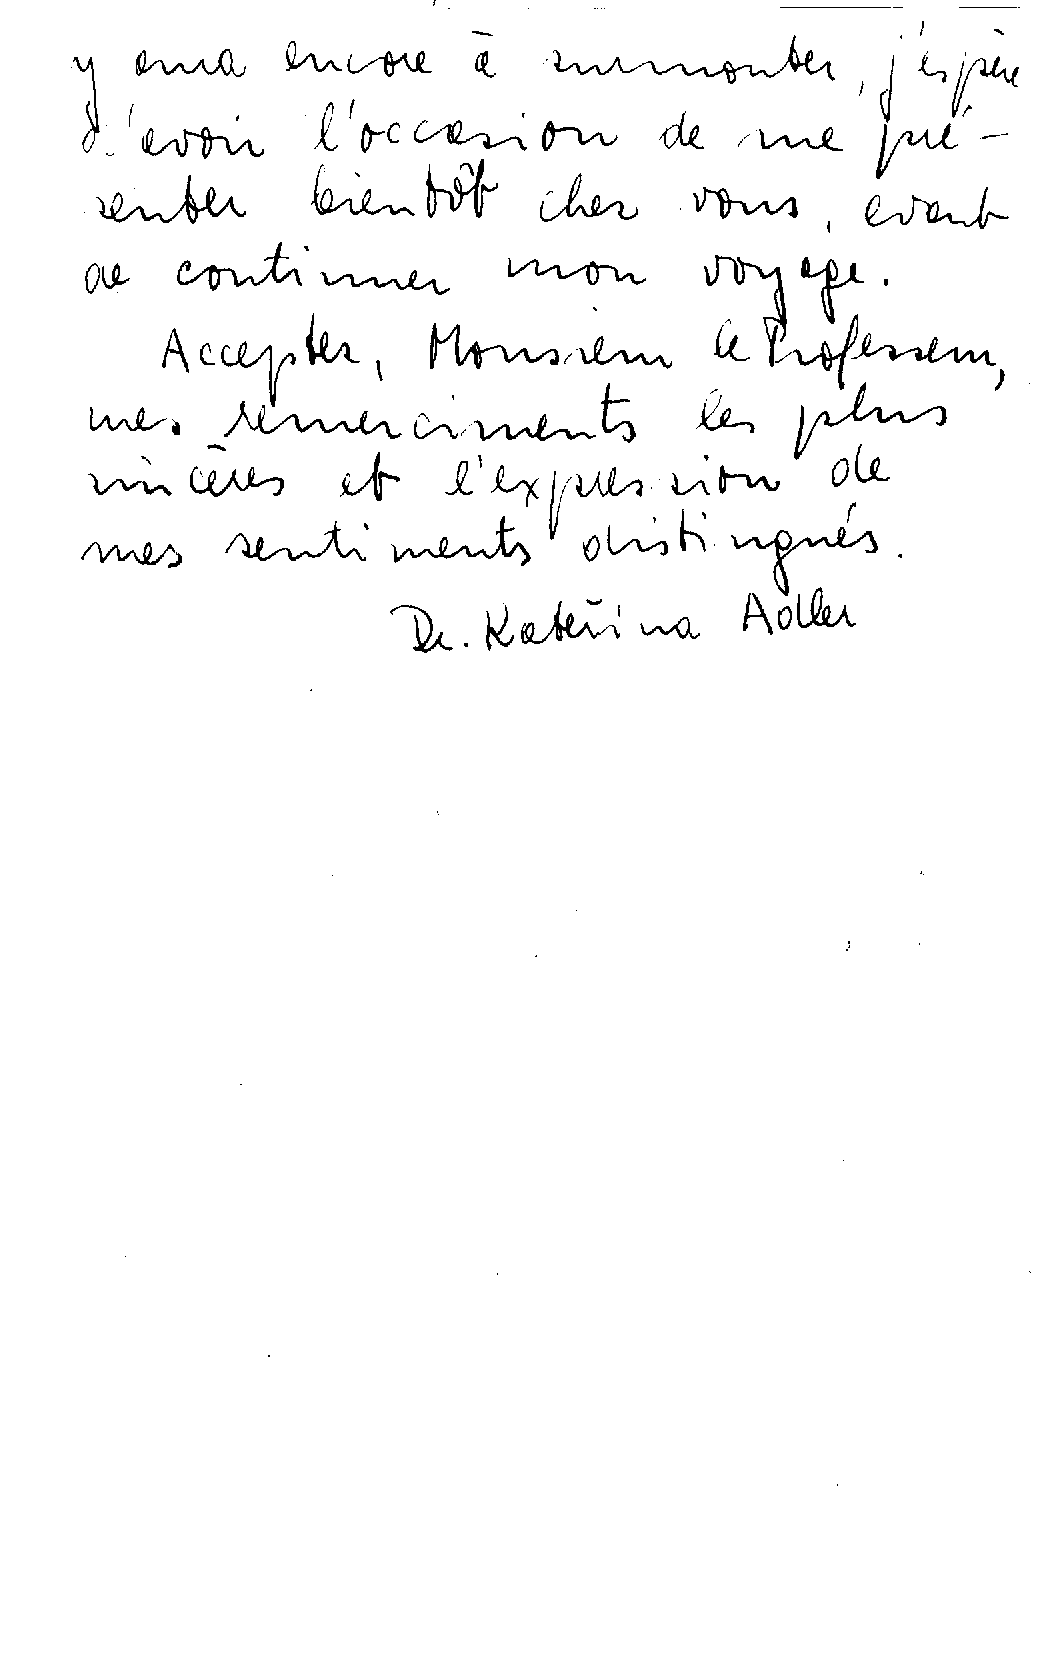 y aura encore à surmonter, j'espère
d'avoir l'occasion de me pré-
senter bientôt chez vous, avant
de continuer mon voyage.
Acceptez, Monsieur le Professeur,
mes remerciments les plus
sincères et l'expression de
mes sentiments distingués.
Dr. Kateřina Adler